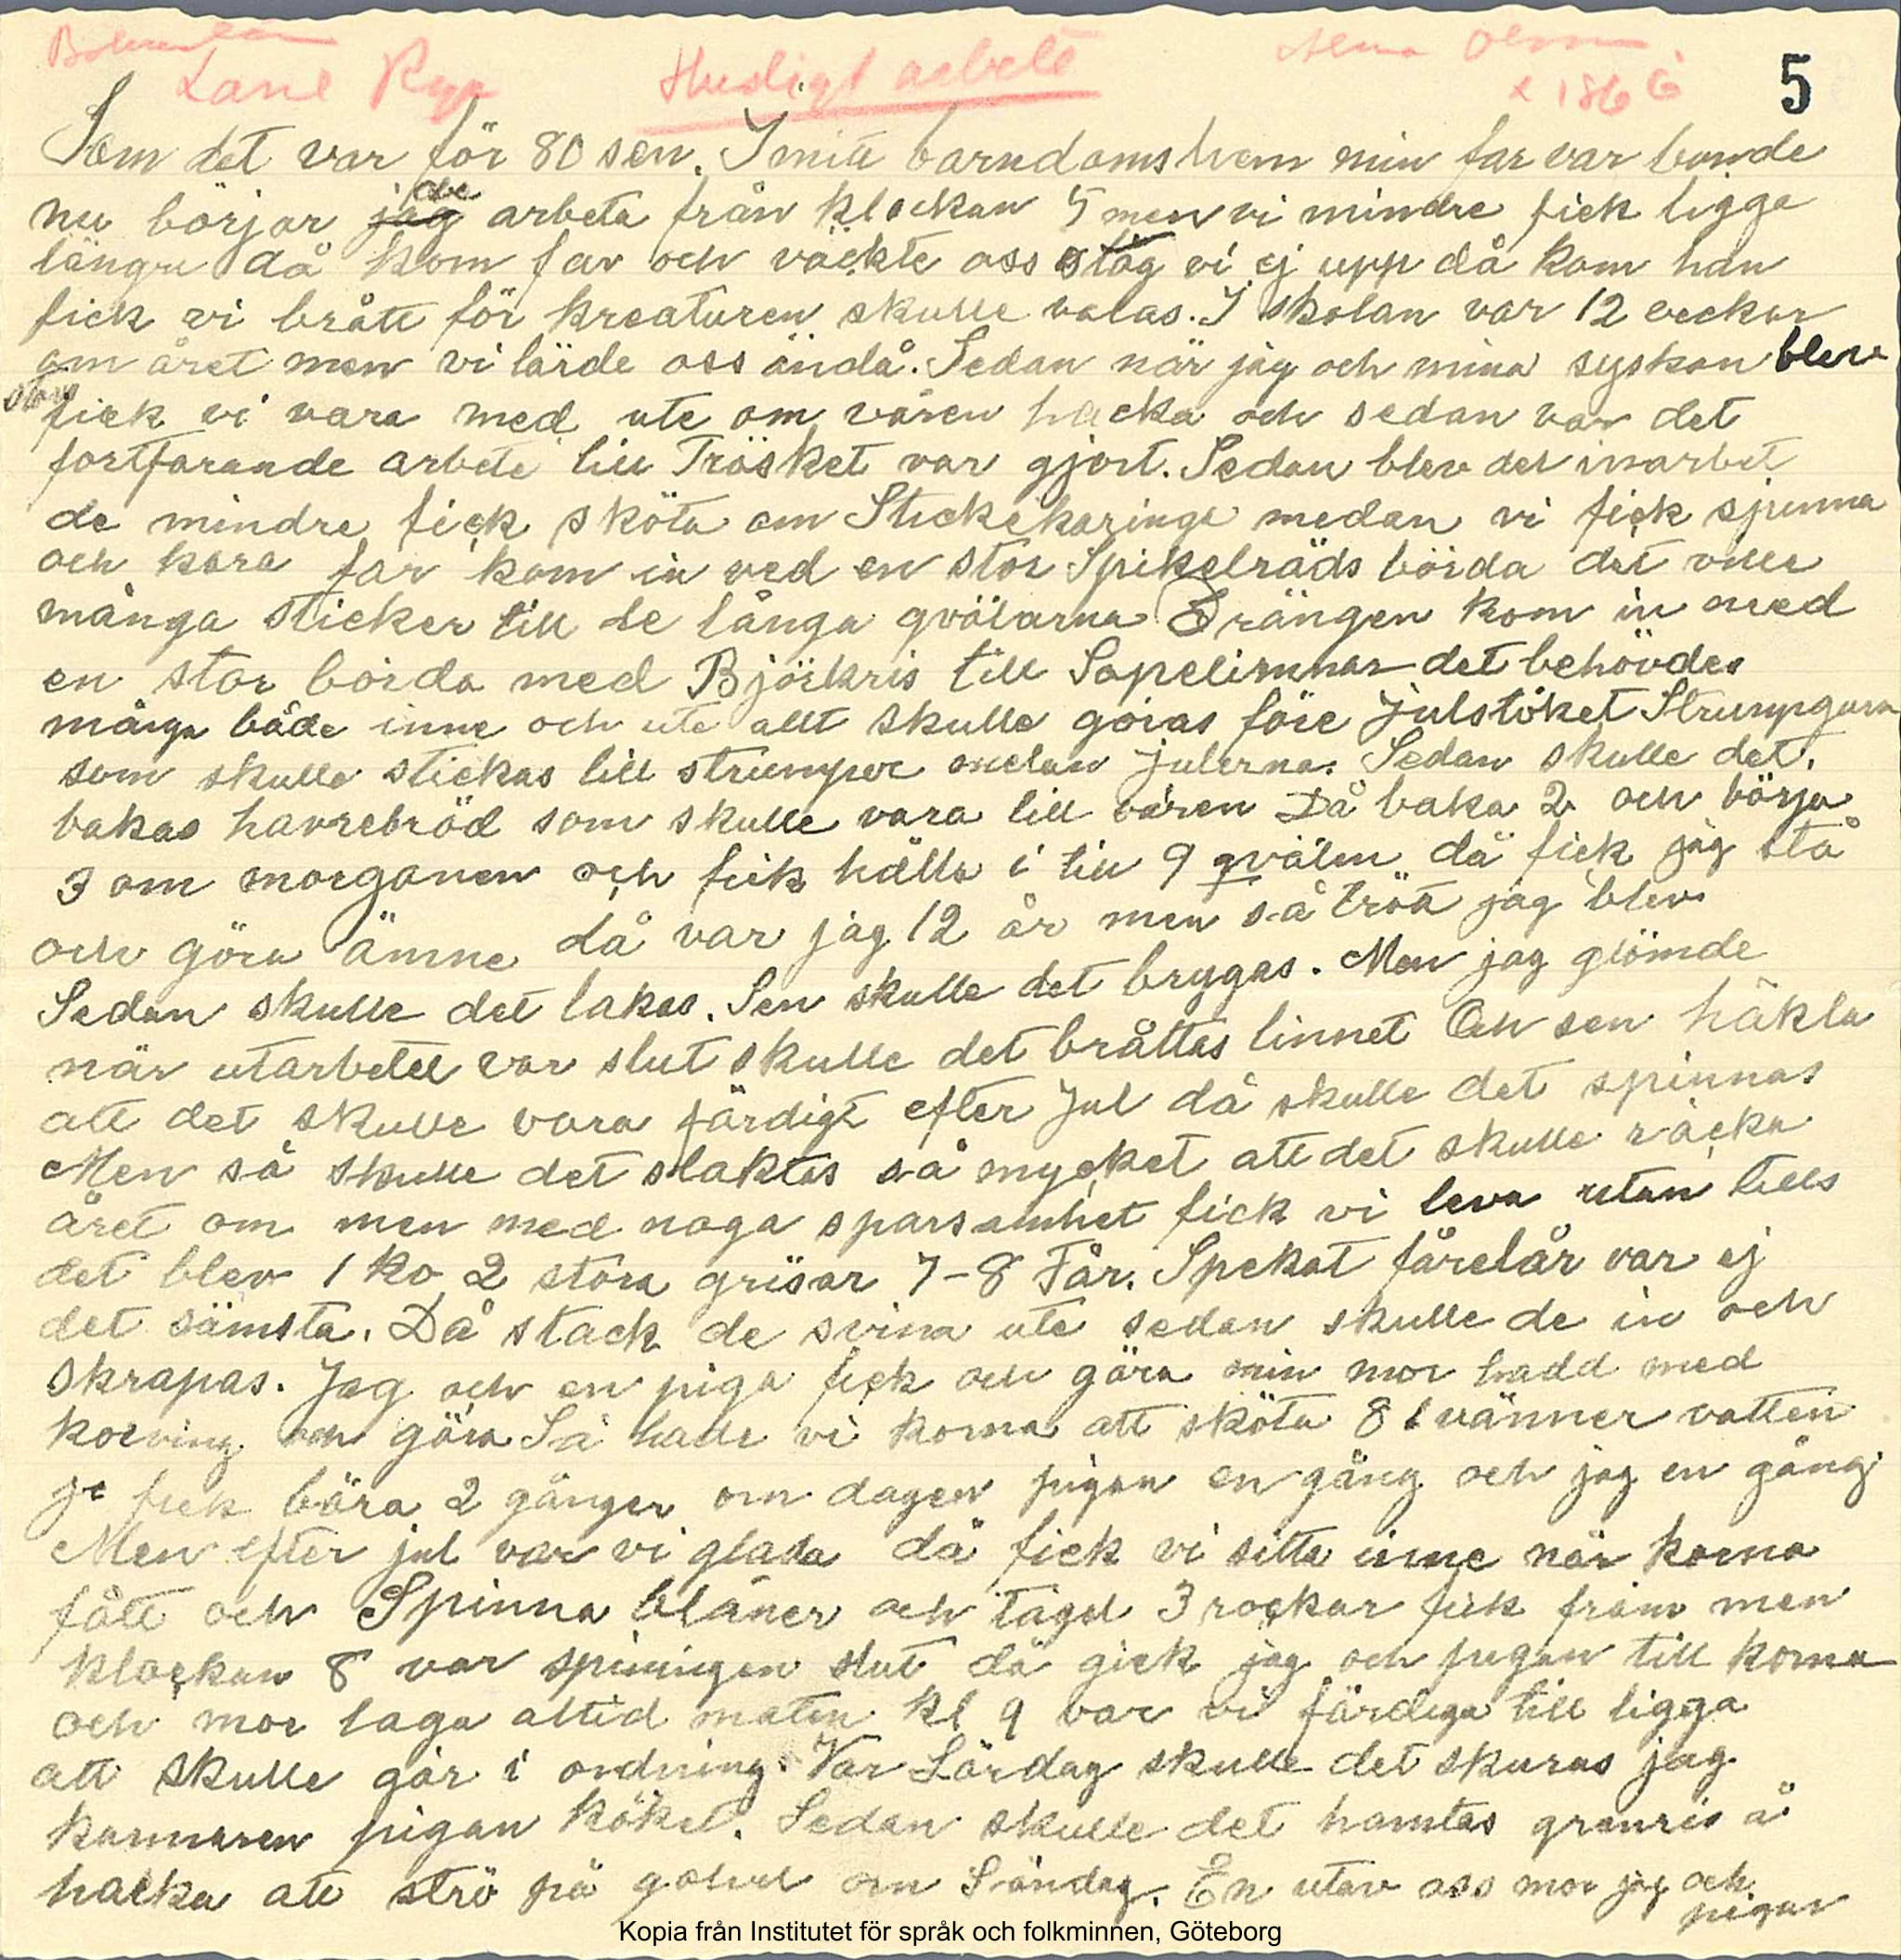 Bohuslän
Lane Ryr Husligt arbete Alma Olsson
x 1866 5
Som det var för 80 sen. I mitt barndomshem min far var bonde
nu börjar jag de arbeta från klockan 5 men vi mindre fick ligga
längre då kom far och väckte oss steg vi ej upp då kom han
fick vi bråtte för kreaturen skulle valas. I skolan var 12 veckor
om året men vi lärde oss ändå. Sedan när jag och mina syskon blev
stora fick vi vara med ute om våren hacka och sedan var det
fortfarande arbete till Trösket var gjort. Sedan blev det inarbet
de mindre fick sköta om Stickekaringa medan vi fick spinna
och kara far kom in ved en stor Spikelräds börda det ville
många sticker till de långa qvälarna Drängen kom in med
en stor börda med Björkris till Sopelimmar det behövdes
många både inne och ute allt skulle göras före Julstöket Strumpgarn
som skulle stickas till strumper melan julerna. Sedan skulle det
bakas havrebröd som skulle vara till våren Då baka 2 och börja
3 om morganen och fick hålla i till 9 qvälen då fick jag stå
och göra ämne då var jag 12 år men så trött jag blev
Sedan skulle det lakas. Sen skulle det bryggas. Men jag glömde
när utarbetet var slut skulle det bråttas linnet Och sen häkla
att det skulle vara färdigt efter Jul då skulle det spinnas
Men så skulle det slaktas så mycket att det skulle räcka
året om men med noga sparsamhet fick vi leva utan tills
det blev 1 ko 2 stora grisar 7-8 Får. Spekat fårelår var ej
det sämsta. Då stack de svina ute sedan skulle de in och
skrapas. Jag och en piga fick och göra min mor hadd med
korving och göra Så hade vi korna att sköta 8 tvänner vatten
je fick bära 2 gånger om dagen pigan en gång och jag en gång
Men efter jul var vi glada då fick vi sitta inne när korna
fått och Spinna blåner och tagel 3 rockar fick fram men
klockan 8 var spiningen slut då gick jag och pigan till korna
och mor laga altid maten kl 9 var vi färdiga till ligga
att skulle gör i ordning. Var Lördag skulle det skuras jag
kammaren pigan köket. Sedan skulle det hamtas granris å
hacka att strö på golvet om Söndag. En utav oss mor jag och
pigan
Kopia från Institutet för språk och folkminnen, Göteborg